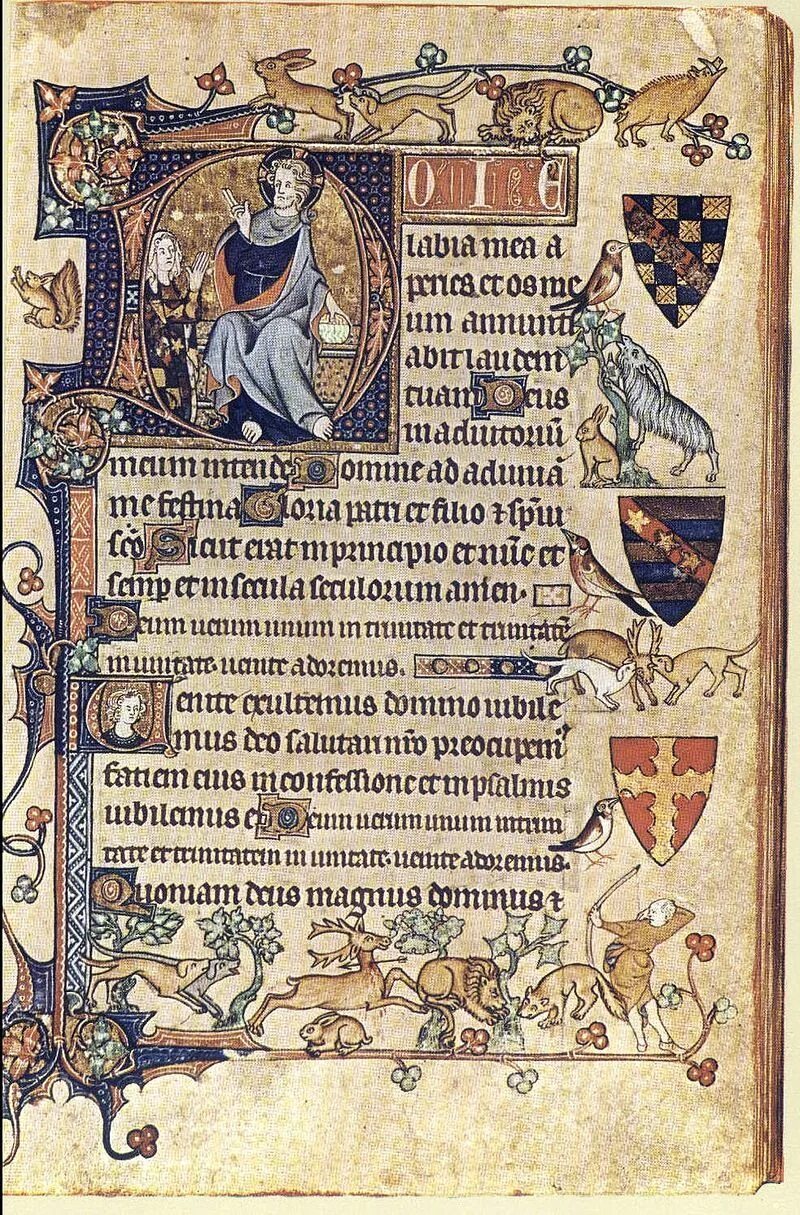 DOIE
labia mea a
peries et os me
um annunti
abit laudem
tuam Deus
in adiutoriū
meum intende Domine ad adiuuā
me festina Gloria patri et filio ⁊ spūi
sc̄o Sicut erat in principio et nūc et
semp̄ et in secula seculorum amen.
Deum uerum unum in trinitate et trinitatē
in unitate. uenite adoremus.
Venite exultemus domino iubile
mus deo salutari n̄ro preocupem
faciem eius in confessione et in psalmis
iubilemus ei Deum uerum unum in trini
tate et trinitatem in unitate. uenite adoremus.
Quoniam deus magnus dominus ⁊